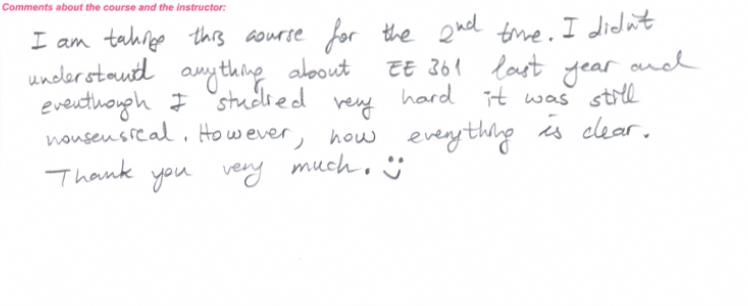 Comments about the course and the instructor:
I am taking this course for the 2nd time. I didn't
understand anything about EE 361 last year and
eventhough I studied very hard it was still
nonsensical. However, now everything is clear.
Thank you very much. :)